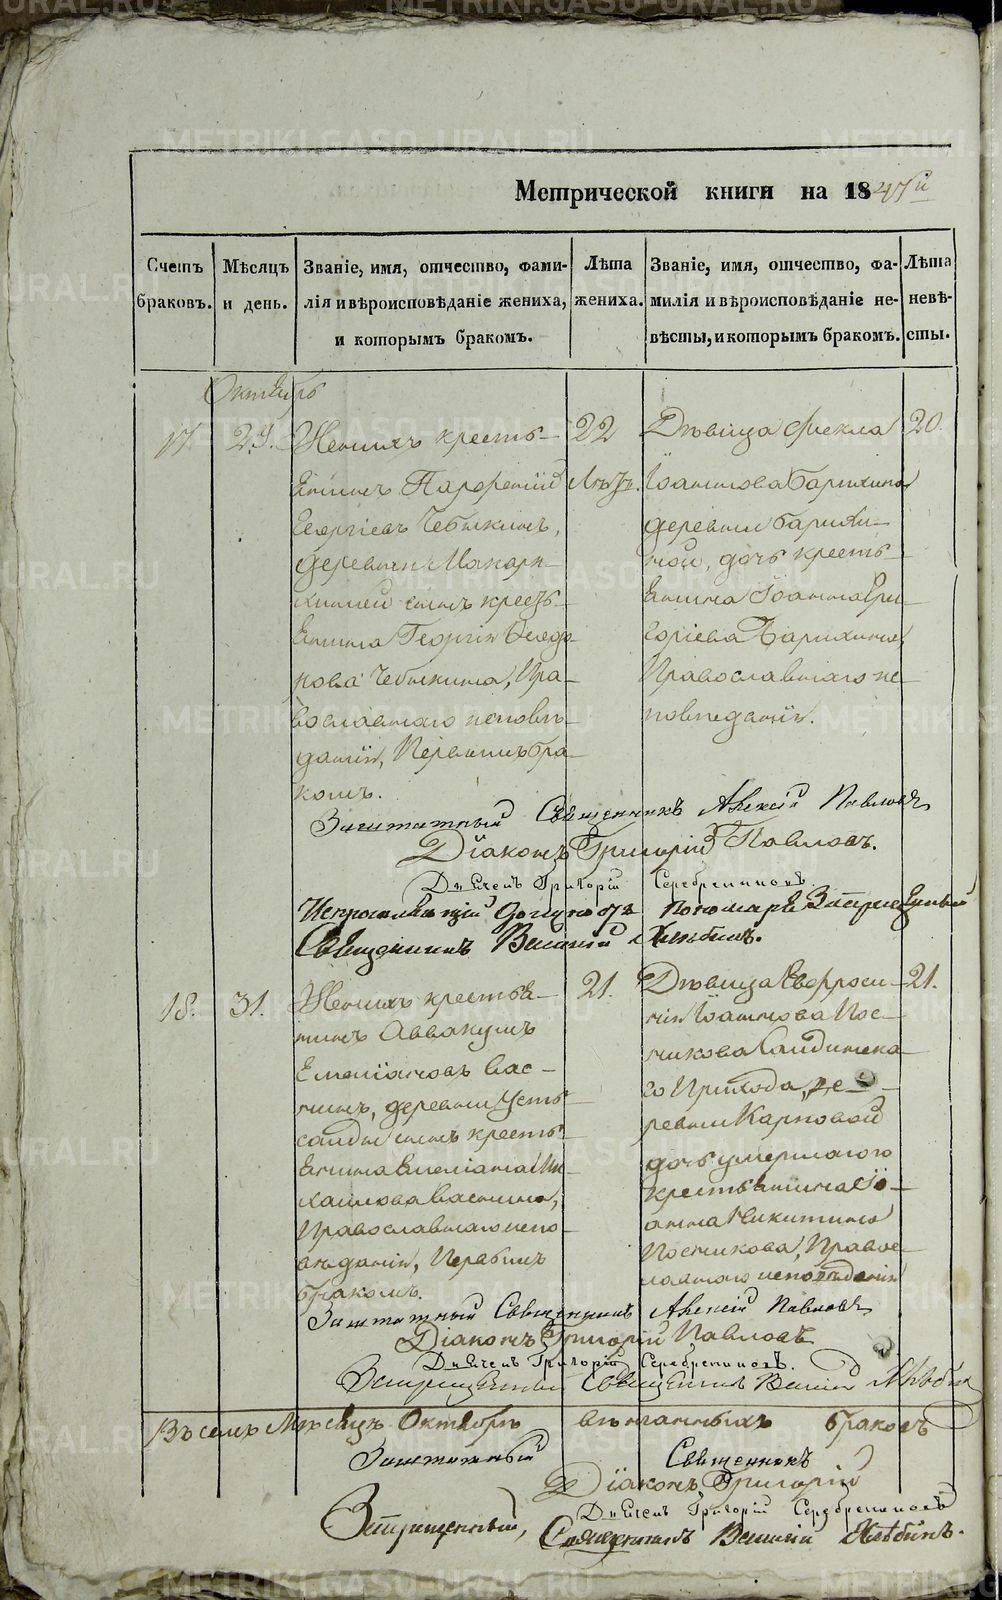 METRIKI.GASO-URAL.RU
Метрической книги на 1847й
Счетъ браковъ.
Мѣсяцъ и день.
Званіе, имя, отчество, фами-
лія и вѣроисповѣданіе жениха,
и которымъ бракомъ.
Лѣта
жениха.
Званіе, имя, отчество, фа-
милія и вѣроисповѣданіе не-
вѣсты, и которымъ бракомъ.
Лѣта
невѣ-
сты.
Октябрь
17. 29.
Женихъ кресть-
янинъ Парфеній
Георгіевъ Чебыкинъ,
деревни Макари-
хиной сынъ кресть-
янина Георгія
Чебыкина, Пра-
вославнаго исповѣ-
данія, Первымъ бра-
комъ.
22
Лѣтъ.
Дѣвица Фекла
Іоаннова Барихина
деревни Барихи-
ной, дочь кресть-
янина Іоанна Гри-
горіева Барихина,
Православнаго ис-
повѣданія.
20.
Заштатный Священникъ Алексій Павловъ
Діаконъ Григорій Павловъ.
Дьячекъ Григорій Серебрениковъ
Пономаря Запрещенный
Священникъ Василій Хлѣбинъ.
18. 31.
Женихъ крестья-
нинъ Аввакумъ
Емеліановъ Вас-
нинъ, деревни Усть-
саиды сынъ кресть-
янина Емеліана Ми-
хаилова Васнина,
Православнаго испо-
вѣданія, Первымъ
бракомъ.
21.
Дѣвица Евфроси-
нія Іоаннова Пос-
никова Саидинска-
го Прихода, де-
ревни Карповой
дочь умершаго
крестьянина Іо-
анна Никитина
Посникова, Правос-
лавнаго исповѣданія
21.
Заштатный Священникъ Алексій Павловъ
Діаконъ Григорій Павловъ
Дьячекъ Григорій Серебрениковъ.
Запрещенный Священникъ Василій Хлѣбинъ
Въ семъ Мѣсяцѣ Октябрѣ вѣнчанныхъ браковъ
Заштатный Священникъ
Діаконъ Григорій
Дьячекъ Григорій Серебрениковъ
Запрещенный, Священникъ Василій Хлѣбинъ.